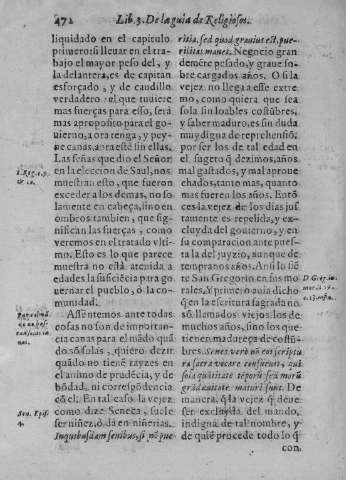 472 Lib. 3. De la guia de Religiosos.
liquidado en el capitulo
primero: si lleuar en el tra-
bajo el mayor peso del, y
la delantera, es de capitan
esforçado, y de caudillo
verdadero: el que tuuiere
mas fuerças para esso, serà
mas a proposito para el go-
uierno, aora tenga, y pey-
ne canas, aora estè sin ellas.
Las señas que dio el Señor
en la eleccion de Saul, nos
muestran esto, que fueron
exceder a los demas, no so-
lamente en cabeça, sino en
ombros tambien, que sig-
nifican las fuerças, como
veremos en el tratado vlti-
mo. Esto es lo que parece
muestra no està atenida a
edades la suficiẽcia para go-
uernar el pueblo, ò la co-
munidad.
Assentemos ante todas
cosas no son de importan-
cia canas para el mãdo quã-
do sõ solas, quiero dezir
quãdo no tienẽ rayzes en
el animo de prudẽcia, y de
bõdad, ni correspõdencia
cõ el. En tal caso la vejez
como dize Seneca, suele
ser niñez, ò da en niñerias.
Inquibusdam senibus, si nõ pue-
1. Reg. c. 9.
& 10.
Sen. Epis.
4.
ritia, sed quod grauius est, pue-
rilitas manet. Negocio gran
demẽte pesado, y graue so-
bre cargados años. O si la
vejez no llega a esse extre-
mo, como quiera que sea
sola sin loables costũbres,
y saber maduro, es sin duda
muy digna de reprehensiõ,
por ser los de tal edad en
el sugeto q̃ dezimos, años
mal gastados, y mal aproue
chados, tanto mas, quanto
mas fueren los años. Entõ-
ces la vejez de los dias jus-
tamente es repelida, y ex-
cluyda del gouierno, y en
su comparacion ante pues-
ta la del juyzio, aunque de
tempranos años. Assi lo siẽ
te San Gregorio en sus mo-
rales, Y primero auia dicho
q̃ en la escritura sagrada no
sõ llamados viejos los de
muchos años, sino los que
tienen madureza de costũ-
bres. Senes verò nõ eos scriptu
ra sacra vocare consueuit, qui
sola quãtitate tẽporũ sed morũ
grãdæuitate maturi sunt. De
manera, q̃ la vejez q̃ deue
ser excluyda del mando,
indigna de tal nombre, y
de quiẽ procede todo lo q̃
con.